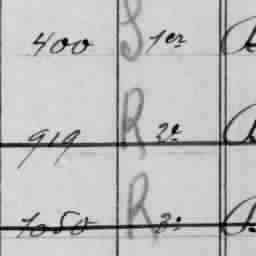 400 S 1er
919 R 2e
1050 R 3e